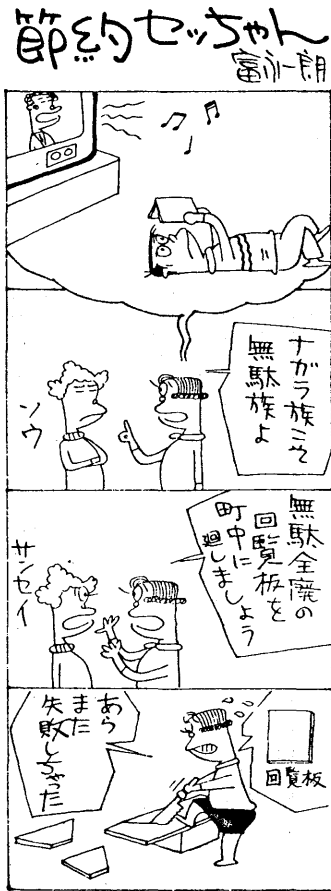 節約セッちゃん
富永一朗
ナガラ族こそ
無駄族よ
ソウ
無駄全廃の
回覧板を
町中に
廻しましょう
サンセイ
回覧板
あら
また
失敗しちゃった